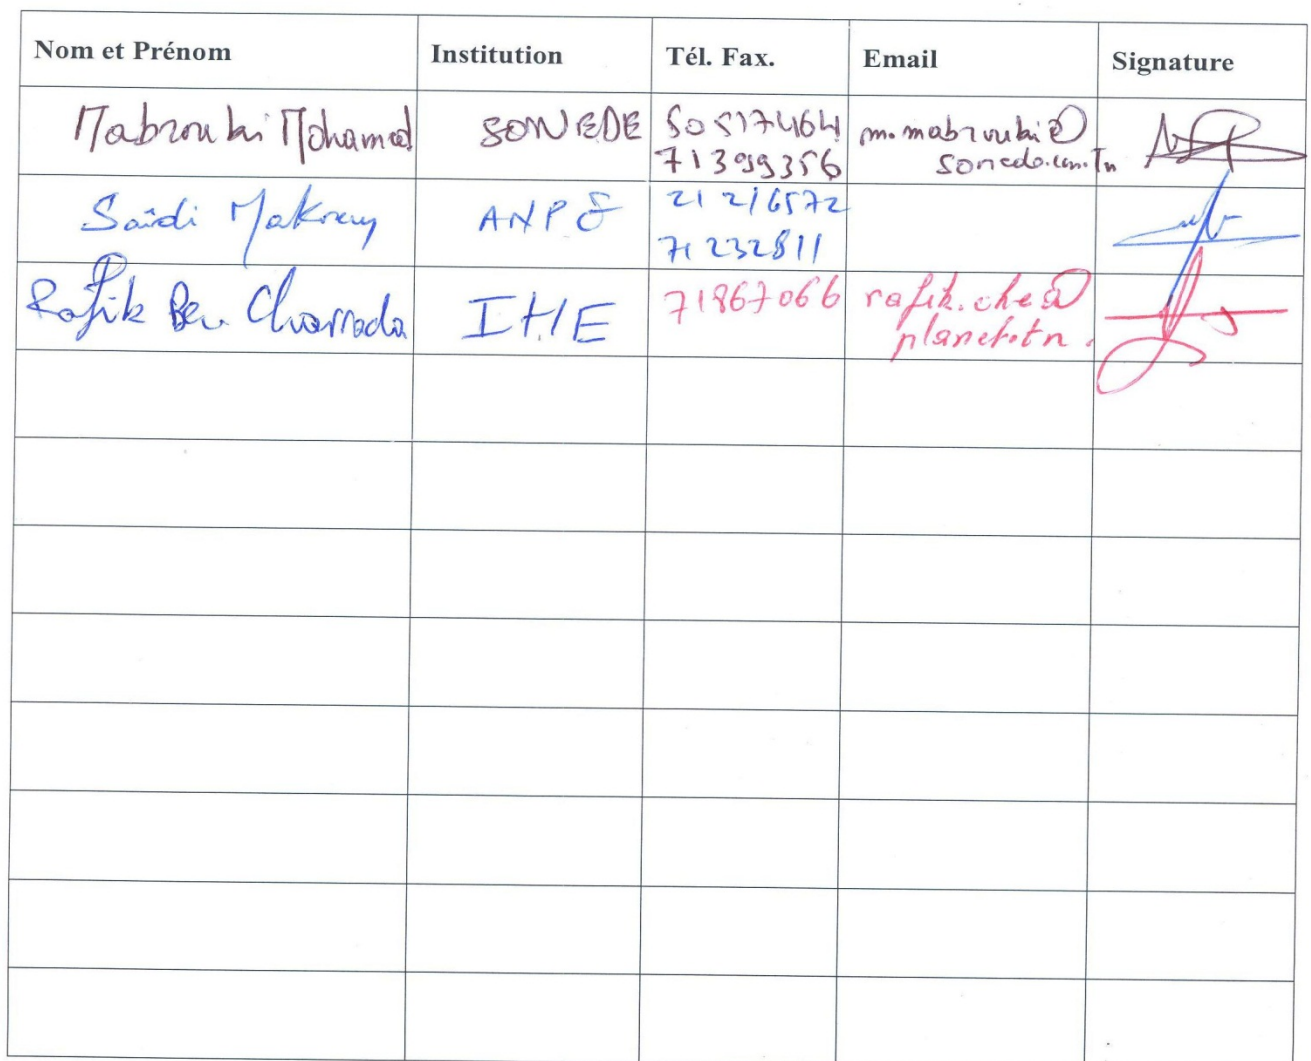 Nom et Prénom Institution Tél. Fax. Email Signature
Mabrouki Mohamed SONEDE 50517464 m.mabrouki@
71399356 sonede.com.Tn
Saïdi Makrem ANPE 21216572
71232811
Rafik Ben Charrada IHE 71867066 rafik.che@
planet.tn.